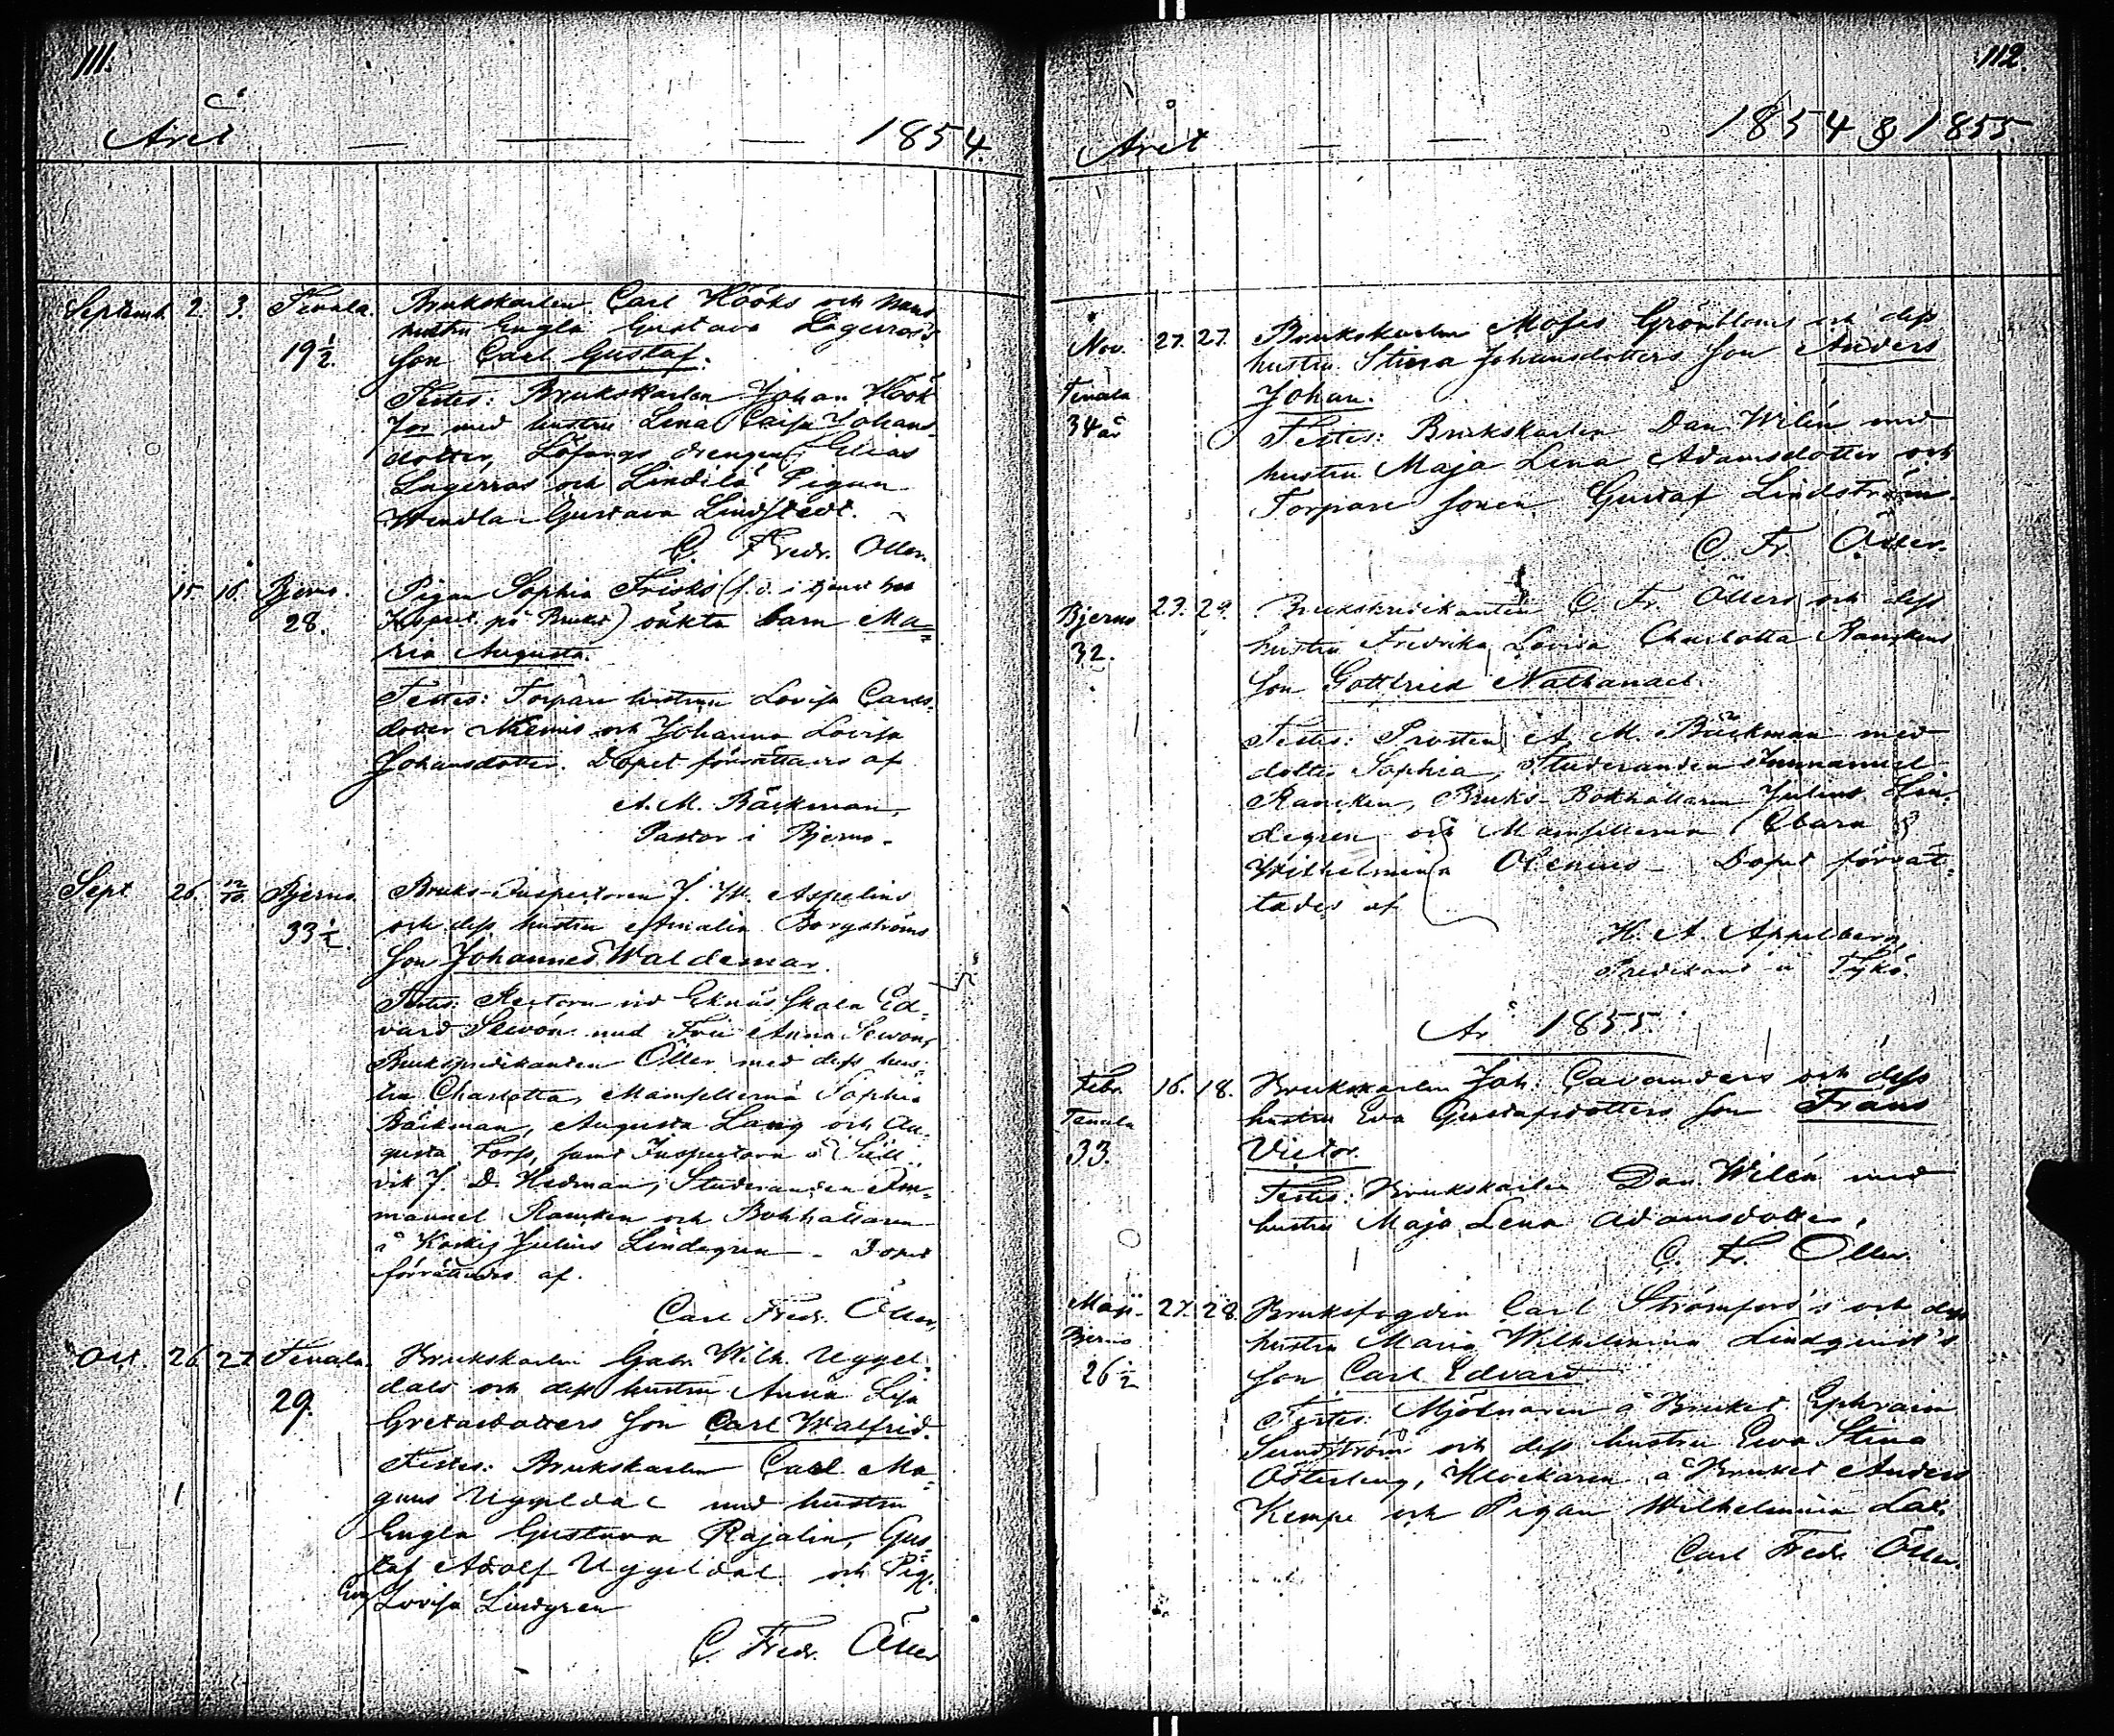 111.
Året 1854.
Septemb. 2. 3. Tenala. Brukskarlen Carl Hööks och hans
hustru Engla Gustava Lagerros's
19 1/2. son Carl Gustaf.
Testes: Brukskarlen Johan Höök
med hustru Lina Caisa Johans-
dotter, drengen Elias
Lagerros och Pigan
Wendla Gustava Lindstedt.
C. Fredr. Öller.
15. 16. Bjerno. Pigan Sophia Frisks (f. d. i tjenst hos
28. på Bruket) oäkta barn Ma=
ria Augusta.
Testes: Torpare hustrun Lovisa Carls-
doter och Johanna Lovisa
Johansdotter. Dopet förrättades af
A. M. Bäckman,
Pastor i Bjerno.
Sept. 26. 12/10. Bjerno. Bruks-Inspectoren J. W. Aspelins
och dess hustru Amalia Borgströms
33 1/2. son Johannes Waldemar.
Testes: Rectorn vid Eknäs skola Ed=
vard Sewón med Fru Anna Sewon,
Brukspredikanten Öller med dess hus=
tru Charlotta, Mamsellerna Sophia
Bäckman, Augusta Lang och Au=
gusta Forss, samt Inspectorn å
vik J. D. Hedman, Studeranden Im=
manuel Rancken och Bokhållaren
å Koskis Julius Lindegren - Dopet
förrättades af.
Carl Fredr. Öller,
Oct. 26 27 Tenala. Brukskarlen Gabr. Wilh. Uggel=
dals och dess hustru Anna Lisa
29. Gretasdotters son Carl Walfrid.
Testes: Brukskarlen Carl Ma=
gnus Uggeldal med hustru
Engla Gustava Rajalin, Gus=
taf Adolf Uggeldal och Pig.
Eva Lovisa Lindgren
C. Fredr. Öller
112.
Året 1854 & 1855.
Nov. 27. 27. Brukskarlen Moses Grönbloms och dess
hustru Stina Johansdotters son Anders
Tenala Johan.
34 år Testes: Brukskarlen Dan. Wilén med
hustru Maja Lena Adamsdotter och
Torpare sonen Gustaf Lindström.
C. Fr. Öller.
Bjerno 23. 29. Brukspredikanten C. Fr. Öllers och dess
32. hustru Fredrika Lovisa Charlotta Ranckens
son Gottfried Nathanael.
Testes: Prosten A. M. Bäckman med
dotter Sophia, Studeranden Immanuel
Rancken, Bruks-Bokhållaren Julius Lin-
degren och Mamsellerna Clara &
Wilhelmina Olenius - Dopet förrät=
tades af
H. A. Appelberg,
Predikant i Tykö.
År 1855.
Febr. 16. 18. Brukskarlen Joh. Cavanders och dess
Tenala hustru Eva Gustafsdotters son Frans
33. Victor.
Testes: Brukskarlen Dan. Wilén med
hustru Maja Lena Adamsdotter.
C. Fr. Öller.
Mars. 27. 28. Bruksfogden Carl Strömfors's och dess
Bjerno hustru Maria Wilhelmina Lindqvist's
26 1/2 son Carl Edvard
Testes: Mjölnaren å Bruket Ephraim
Sundström och dess hustru Eva Stina
Österling, Klockaren å Bruket Anders
Kempe och Pigan Wilhelmina
Carl Fredr. Öller.